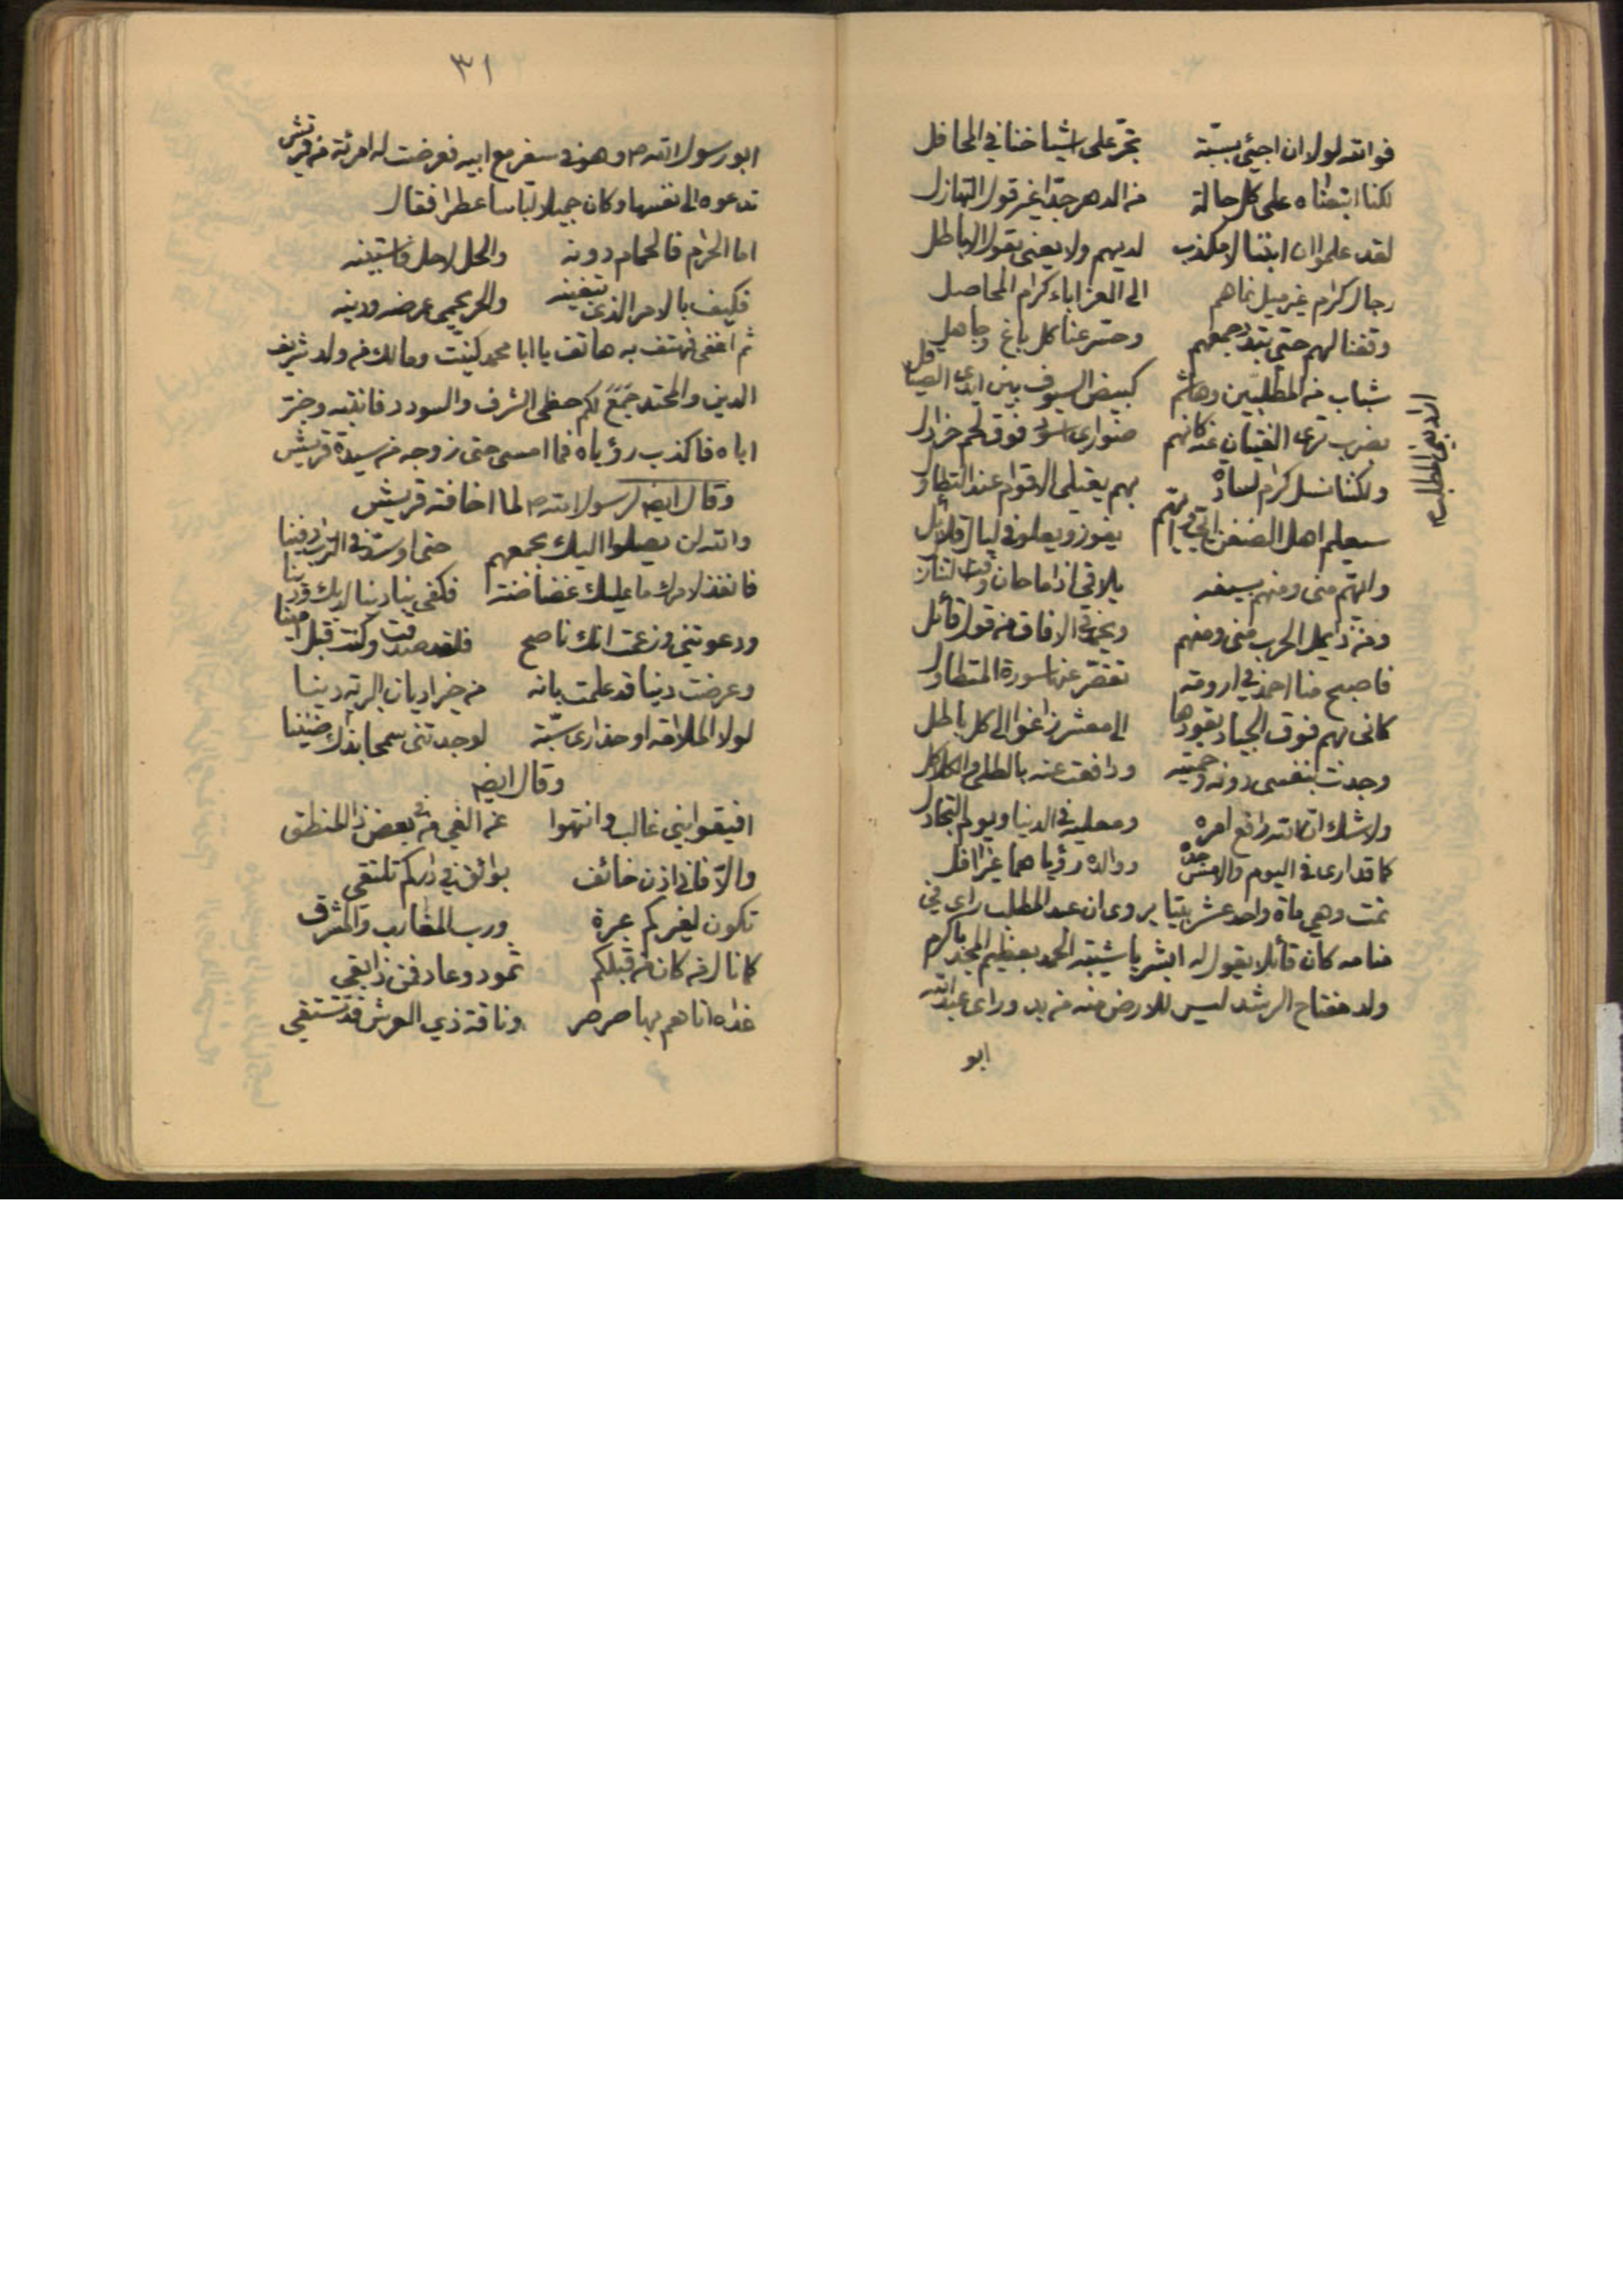 فوالله لولا ان اجيئ بسبة تجر على اشياخنا في المحافل
لكنا اتبعناه على كل حالة من الدهر جدا غير قول التهازل
لقد علموا ان ابننا لا مكذب لديهم ولا يعنى بقول الاباطل
رجال كرام غير ميل نماهم الى العز اباء كرام المحاصل
وقفنا لهم حتى تبدد جمعهم وحسر عنا كل باغ وجاهل
شباب من المطلبين وهاشم كبيض السيوف بين ايدى الصياقل
بضرب ترى الفتيان عنه كانهم ضوارى اسود فوق لحم خرادل
ولكننا نسل كرام لسادة بهم يعتلى الاقوام عند التطاول
سيعلم اهل الضغن ايي وايهم يفوز ويعلو في ليال قلائل
وايهم منى ومنهم بسيفه يلاقي اذا ما حان وقت التنازل
ومن ذا يمل الحرب منى ومنهم ويحمد في الافاق من قول قائل
فاصبح منا احمد في ارومة تقصر عنها سورة المتطاول
كانى بهم فوق الجياد يقودها الى معشر زاغوا الى كل باطل
وجدت بنفسى دونه وحميته ودافعت عنه بالطلى والكلاكل
ولا شك ان الله رافع امره ومعليه في الدنيا ويوم التجادل
كما قد ارى في اليوم والامس جده ووالده رؤياهما غير افل
تمت وهي ماة واحد عشر بيتا يروى ان عبد المطلب راى في
منامه كان قائلا يقول له ابشر يا شيبة الحمد بعظيم المجد باكرم
ولد مفتاح الرشد ليس للارض منه من بد وراى عبد الله
ابو
٣١
ابو رسول الله ص وهو في سفر مع ابيه فعرضت له امرئة من قريش
تدعوه الى نفسها وكان جميلا لباسا عطرا فقال
اما الحرام فالحمام دونه والحل لا حل فاستبينه
فكيف بالامر الذى تبغينه والحر يحمى عرضه ودينه
ثم اغفى فهتف به هاتف يا ابا محمد كنيت ومالك من ولد شريف
الدين والمحتد جمع لكم حظى الشرف والسودد فانتبه وخبر
اباه فاكذب رؤياه فما امسى حتى زوجه من سيدة قريش
وقال ايضا لرسول الله ص لما اخافته قريش
والله لن يصلوا اليك بجمعهم حتى اوسد في التراب دفينا
فانفذ لامرك ما عليك غضاضة فكفى بنا دنيا لديك ودينا
ودعوتني وزعمت انك ناصح فلقد صدقت وكنت قبل امينا
وعرضت دينا قد علمت بانه من خير اديان البرية دينا
لولا الملامة او حذارى سبة لوجدتنى سمحا بذاك ضنينا
وقال ايضا
افيقوا بني غالب وانتهوا عن الغي في بعض ذا المنطق
والا فاني اذن خائف بوائق في داركم تلتقي
تكون لغيركم عبرة ورب المغارب والمشرق
كما نال من كان من قبلكم ثمود وعاد فمن ذا بقي
غداة اتاهم بها صرصر وناقة ذي العرش قد تستقي